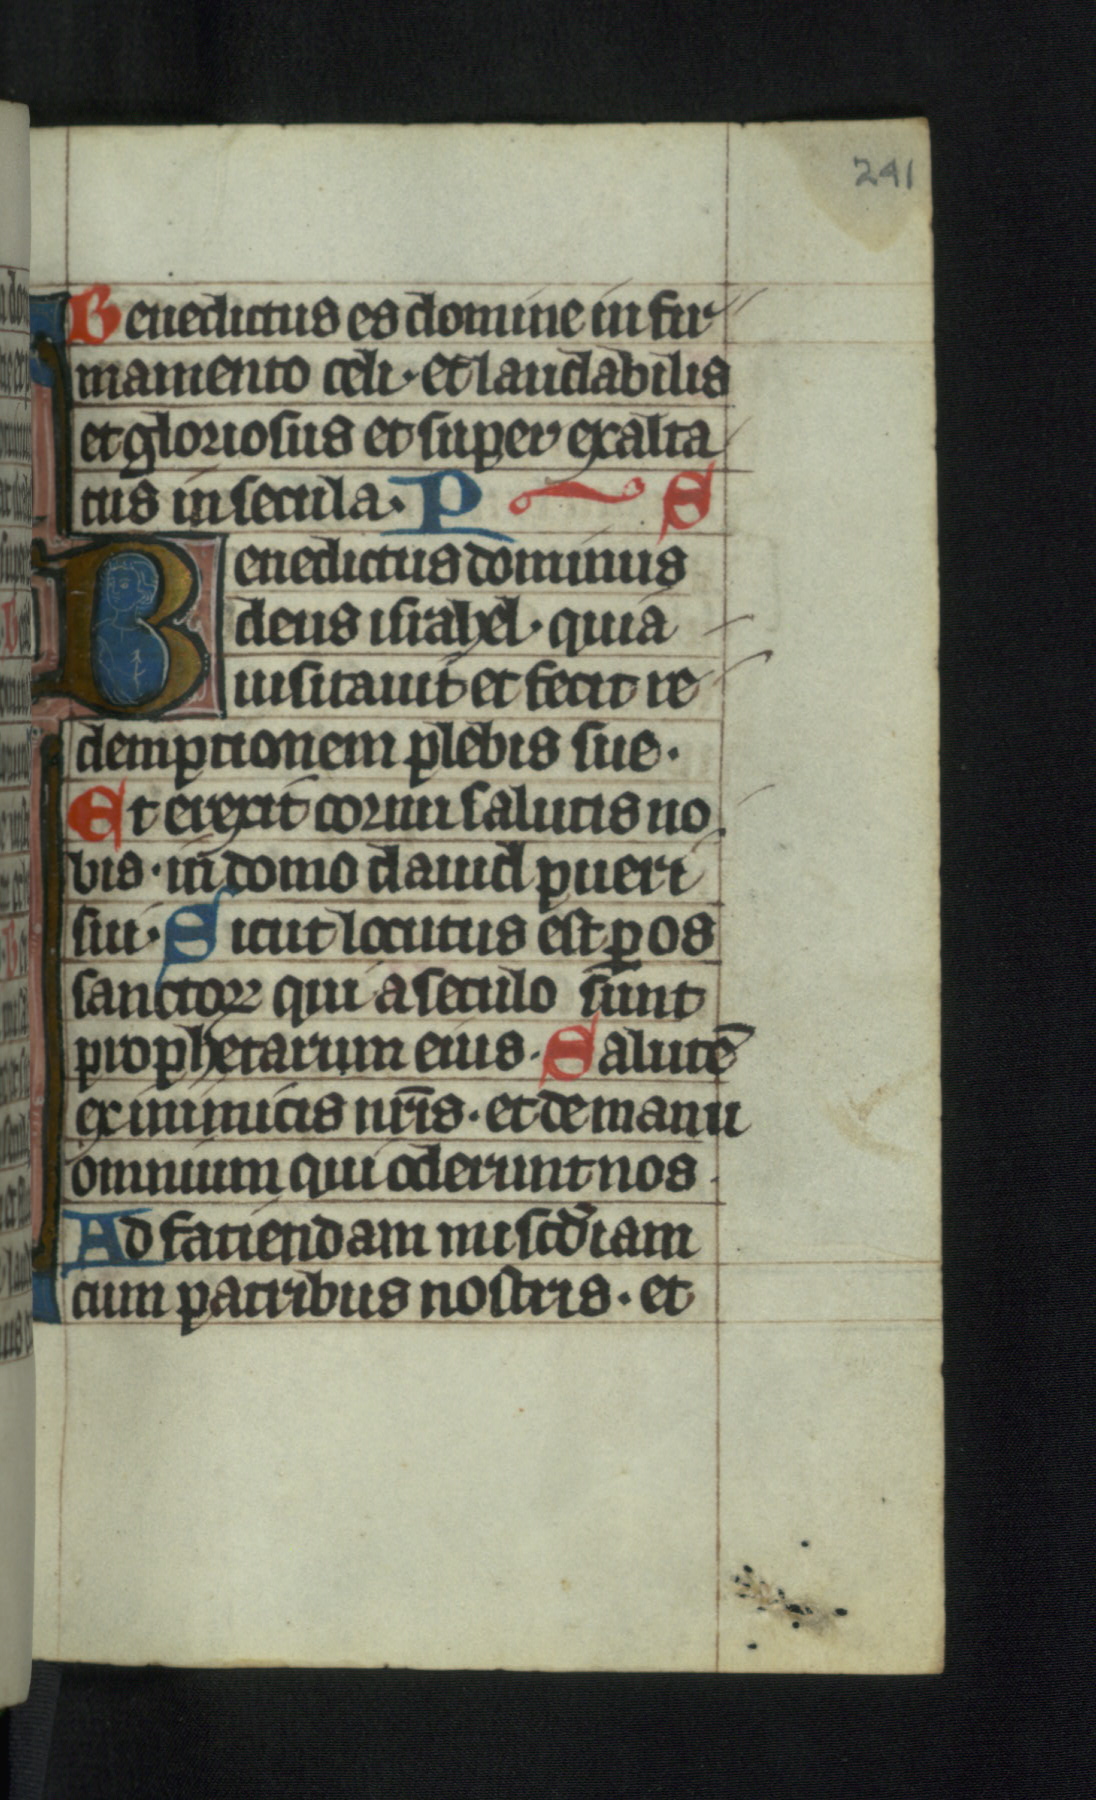 241
Benedictus es domine in fir
mamento celi · et laudabilis
et gloriosus et super exalta
tus in secula · P S
Benedictus dominus
deus israhel · quia
uisitauit et fecit re
demptionem plebis sue ·
Et erexit cornu salutis no
bis · in domo dauid pueri
sui · Sicut locutus est ꝑ os
sanctoꝝ qui a seculo sunt
prophetarum eius · Salutē
ex inimicis nr̄is · et de manu
omnium qui oderunt nos ·
Ad faciendam misc̄diam
cum patribus nostris · et